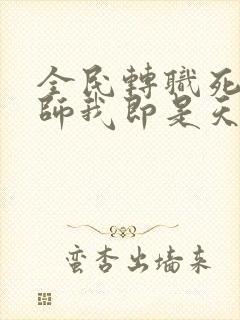 全民轉職死
師我即是天
蛮杏出墙来